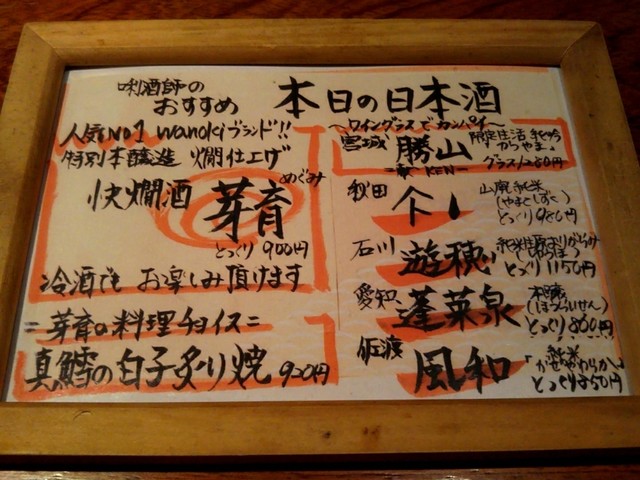 唎酒師の
おすすめ
本日の日本酒
人気No1 wanokiブランド!!
特別本醸造 燗仕上げ
快燗酒 芽育
めぐみ
とっくり 900円
冷酒でも お楽しみ頂けます
=芽育の料理チョイス=
真鱈の白子炙り焼 920円
〜ワイングラスでカンパイ〜
宮城 勝山
KEN
限定生活 純吟
かつやま
グラス1280円
秋田
山廃純米
(やまとしずく)
とっくり980円
石川 遊穂
とっくり1150円
愛知 蓬莱泉
本醸造
(ほうらいせん)
とっくり860円
佐渡 風和
純米
「かぜやわらか」
とっくり850円